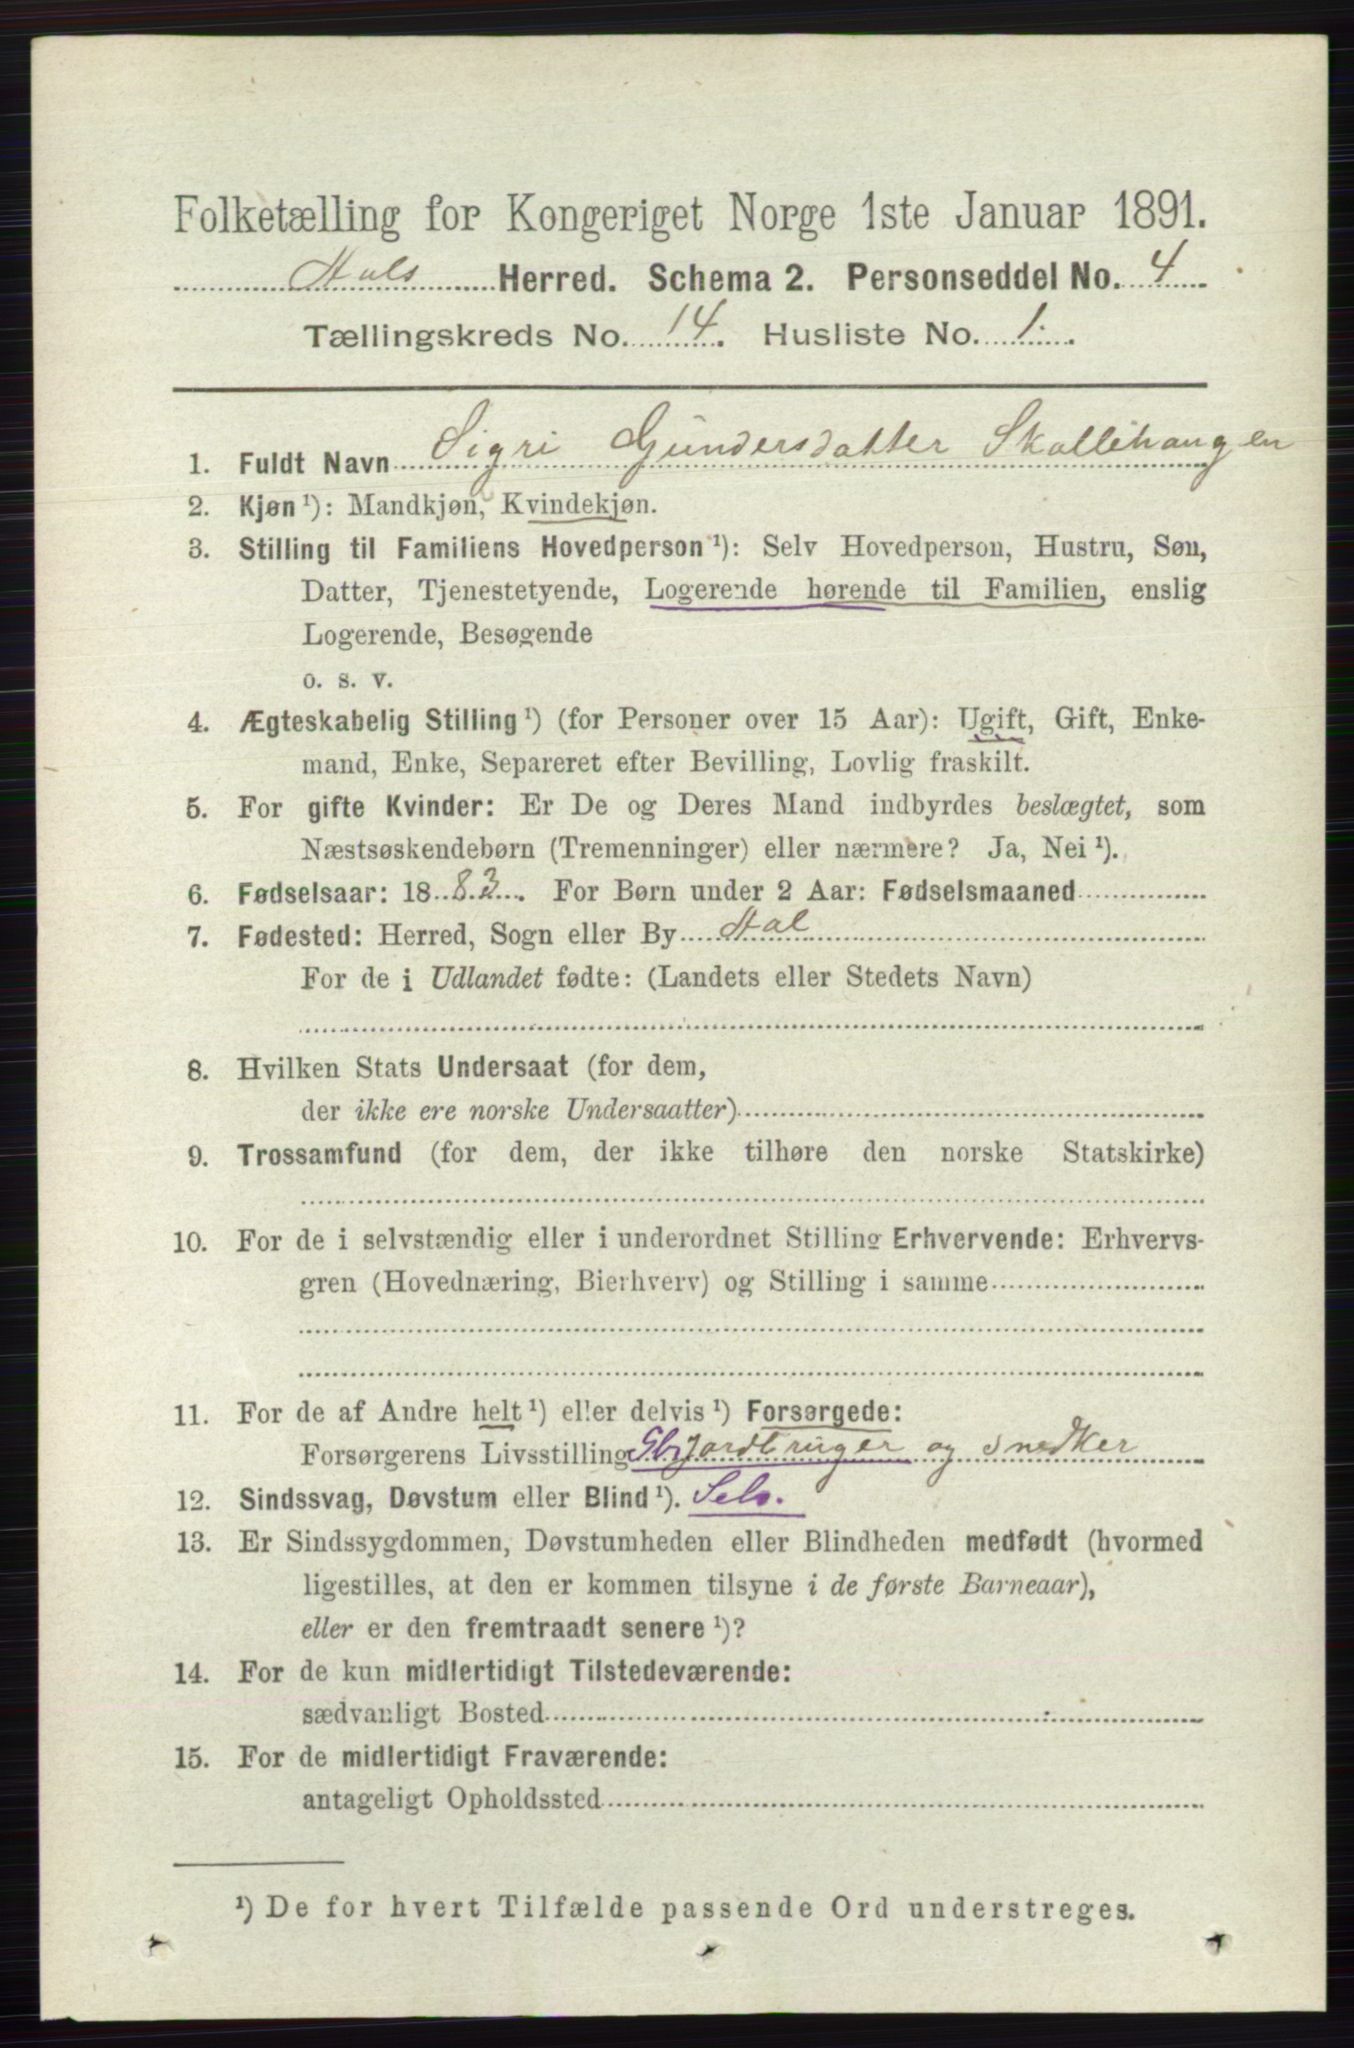 Folketælling for Kongeriget Norge 1ste Januar 1891.
Hals Herred. Schema 2. Personseddel No. 4
Tællingskreds No. 14. Husliste No. 1.
1. Fuldt Navn Sigri Gundersdatter Skollehaugen
2. Kjøn ¹): Mandkjøn, Kvindekjøn.
3. Stilling til Familiens Hovedperson ¹): Selv Hovedperson, Hustru, Søn,
Datter, Tjenestetyende, Logerende hørende til Familien, enslig
Logerende, Besøgende
o. s. v.
4. Ægteskabelig Stilling ¹) (for Personer over 15 Aar): Ugift, Gift, Enke-
mand, Enke, Separeret efter Bevilling, Lovlig fraskilt.
5. For gifte Kvinder: Er De og Deres Mand indbyrdes beslægtet, som
Næstsøskendebørn (Tremenninger) eller nærmere? Ja, Nei ¹).
6. Fødselsaar: 1883. For Børn under 2 Aar: Fødselsmaaned
7. Fødested: Herred, Sogn eller By Hal
For de i Udlandet fødte: (Landets eller Stedets Navn)
8. Hvilken Stats Undersaat (for dem,
der ikke ere norske Undersaatter)
9. Trossamfund (for dem, der ikke tilhøre den norske Statskirke)
10. For de i selvstændig eller i underordnet Stilling Erhvervende: Erhvervs-
gren (Hovednæring, Bierhverv) og Stilling i samme
11. For de af Andre helt ¹) eller delvis ¹) Forsørgede:
Forsørgerens Livsstilling Gbr Jordbruger og Snedker
12. Sindssvag, Døvstum eller Blind ¹). Selv.
13. Er Sindssygdommen, Døvstumheden eller Blindheden medfødt (hvormed
ligestilles, at den er kommen tilsyne i de første Barneaar),
eller er den fremtraadt senere ¹)?
14. For de kun midlertidigt Tilstedeværende:
sædvanligt Bosted
15. For de midlertidigt Fraværende:
antageligt Opholdssted
¹) De for hvert Tilfælde passende Ord understreges.